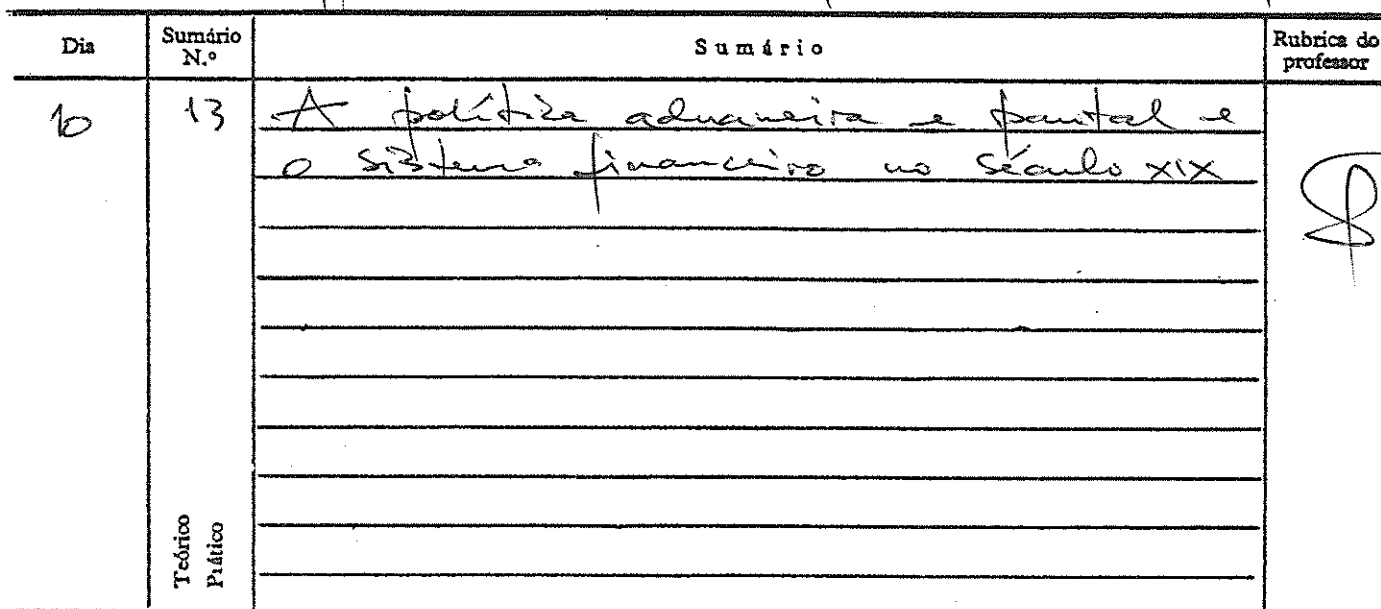 Dia Sumário N.º Sumário Rubrica do professor
10 13 A política aduaneira e pautal e
o sistema financeiro no século XIX
Teórico
Prático